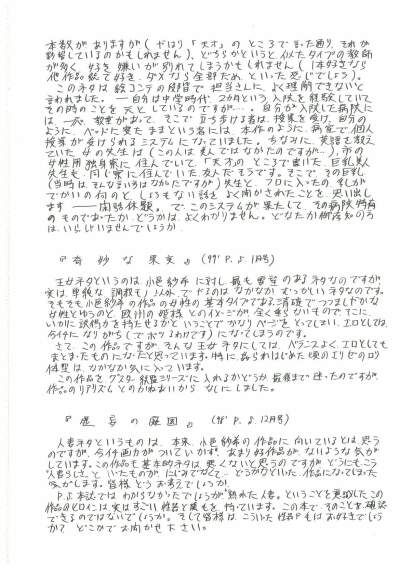 本数がありますが(やはり「天才」のところで言った通り、それが
影響しているのかもしれません)、どちらかというと似たタイプの教師
が多く、好き嫌いが別れてしまうかもしれません(1本好きなら
他作品総て好き、ダメなら全部だめといった感じでしょう)。
このネタは絵コンテの段階で担当さんに、よく理解できないと
言われました。――自分は中学時代、2カ月という入院を経験していて
その時のことを元としているのですが…。自分が入院した病院に
は 教室があって、そこで立ち歩ける者は、授業を受け、自分の
ように、ベッドに寝たままという者には、本作のように、病室で個人
授業が受けられるシステムになっていました。ちなみに、英語を教え
ていた の先生は(この人は美人ではなかったのですが…)、市の
女性用独身寮に住んでいて「天才」のところで書いた、巨乳美人
先生も、同じ寮に住んでいた友人だそうです。そこで、その巨乳
(当時は、そんな言い方はなかったですが)先生と、フロに入ったの、乳が
でかいの何のと、しょうもない話をよく聞かされたことを思い出し
ます――閑話休題。で、このシステムが果たして、その病院特有
のものであったか、どうかはよくわかりません。どなたか御存知の方
は、いらしゃいませんでしょうか。
『奇妙な果実』(97' P.J. 11月号)
王女ネタというのは小邑紗希に対し、最も要望のあるネタなのですが
実は、単純な「調教もの」以外でやるのはなかなかむつかしいネタなのです。
そもそも小邑紗希の作品の女性の基本タイプである清疎でつつましやかな
女性とゆうのと、欧州の姫様とのイメージが全く重ならないもので、そこに
いかに説得力を持たせるかということでかなりページをとってしまい、エロとしては、
今イチになりがち(でボツるわけです)になってしまうのです。
さて、この作品ですが、そんな王女ネタにしては、バランスよく、エロとしても
まとまったものになったと思っています。特に
体型は、なかなか気に入っています。
この作品をグスターヴ シリーズに入れるかどうか 最後まで迷ったのですが、
作品のリアリズムとのかねあいから なしにしました。
(98' P.J. 12月号)
人妻ネタというものは、本来、小邑紗希の作品に向いているとは思う
のですが、今イチ画力がついていかず、あまり好作品がないような気が
しています。この作品も基本的ネタは悪くないと思うのですが、どうにもこう
「人妻らしさ」といったものが、にじみでなくて、どうかなといった作品になってしまった
気がします。皆様どうお考えでしょうか。
P.J.本誌ではわからなかったでしょうが"熟れた人妻"ということを意識したこの
作品のヒロインは、実はすごい性器と腋毛を持っています。この本でそのことを確認
できるのではないでしょうか。そして皆様は、こういった性器や毛はお好きでしょう
か?どこかでお聞かせ下さい。